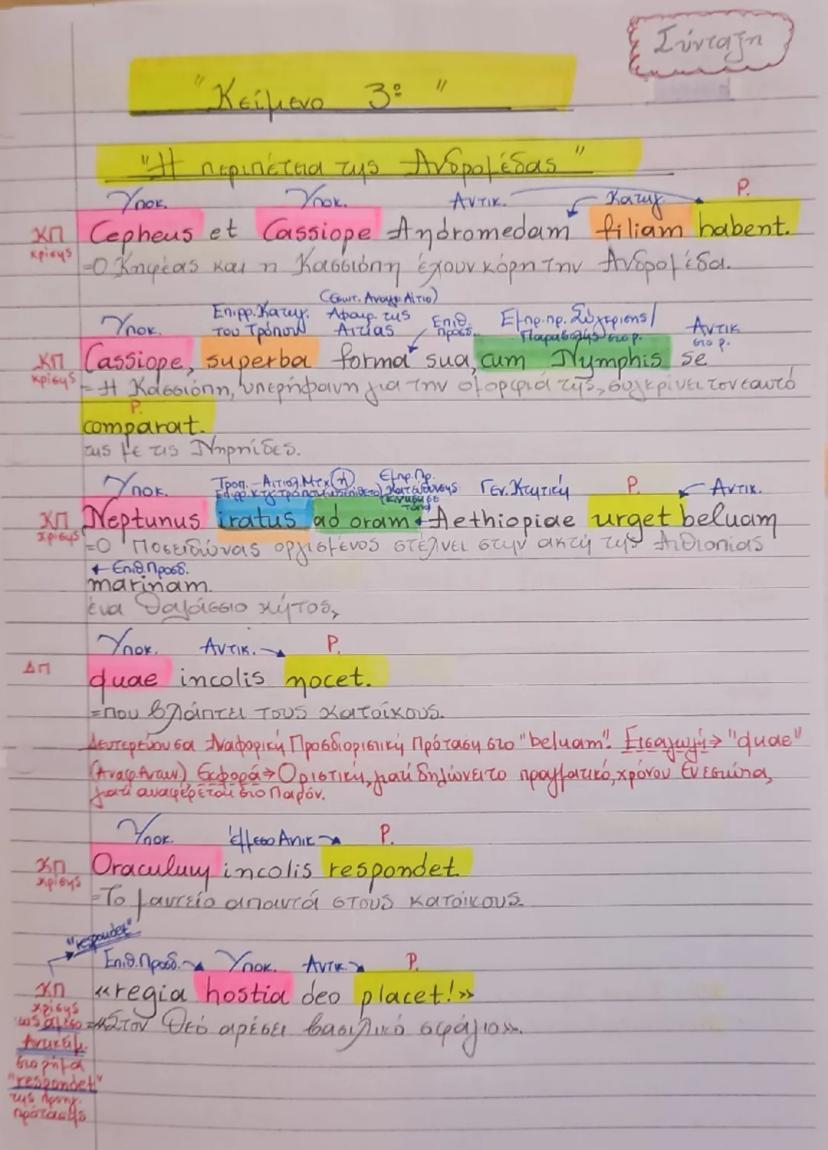 Σύνταξη
"Κείμενο 3ο"
"Η περιπέτεια της Ανδρομέδας"
Υποκ. Υποκ. Αντικ. Κατηγ. Ρ.
ΚΠ κρίσης Cepheus et Cassiope Andromedam filiam habent.
=Ο Κηφέας και η Κασσιόπη έχουν κόρη την Ανδρομέδα.
(Εσωτ. Αναγκ. Αίτιο)
Υποκ. Επιρρ. Κατηγ. του Τρόπου Αφαιρ. της Αιτίας Επιθ. Προσδ. Εμπρ. πρ. Σύγκρισης/ Παραβολής στο ρ. Αντικ στο ρ.
ΚΠ κρίσης Cassiope, superba forma sua, cum Nymphis se
=Η Κασσιόπη, υπερήφανη για την ομορφιά της, συγκρίνει τον εαυτό
Ρ.
comparat.
της με τις Νηρηίδες.
Υποκ. Τροπ. - Αιτιολ. Μτχ (ή) Εμπρ. Πρ. Κατεύθυνσης Γεν. Κτητική Ρ. Αντικ.
ΚΠ κρίσης Neptunus iratus ad oram Aethiopiae urget beluam
=Ο Ποσειδώνας οργισμένος στέλνει στην ακτή της Αιθιοπίας
Επιθ. Προσδ.
marinam.
ένα θαλάσσιο κήτος,
Υποκ. Αντικ. Ρ.
ΔΠ quae incolis nocet.
=που βλάπτει τους κατοίκους.
Δευτερεύουσα Αναφορική Προσδιοριστική Πρόταση στο "beluam". Εισαγωγή→ "quae"
(Αναφ. Αντων.) Εκφορά→ Οριστική, γιατί δηλώνει το πραγματικό, χρόνου Ενεστώτα,
γιατί αναφέρεται στο Παρόν.
Υποκ. Έμμεσο Αντικ Ρ.
ΚΠ κρίσης Oraculum incolis respondet.
=Το μαντείο απαντά στους κατοίκους.
"respondet"
Επιθ. Προσδ. Υποκ. Αντικ Ρ.
ΚΠ «regia hostia deo placet!»
κρίσης
ως άμεσο =«Στον Θεό αρέσει βασιλικό σφάγιο».
Αντικείμ.
στο ρήμα
"respondet"
της προηγ.
πρότασης